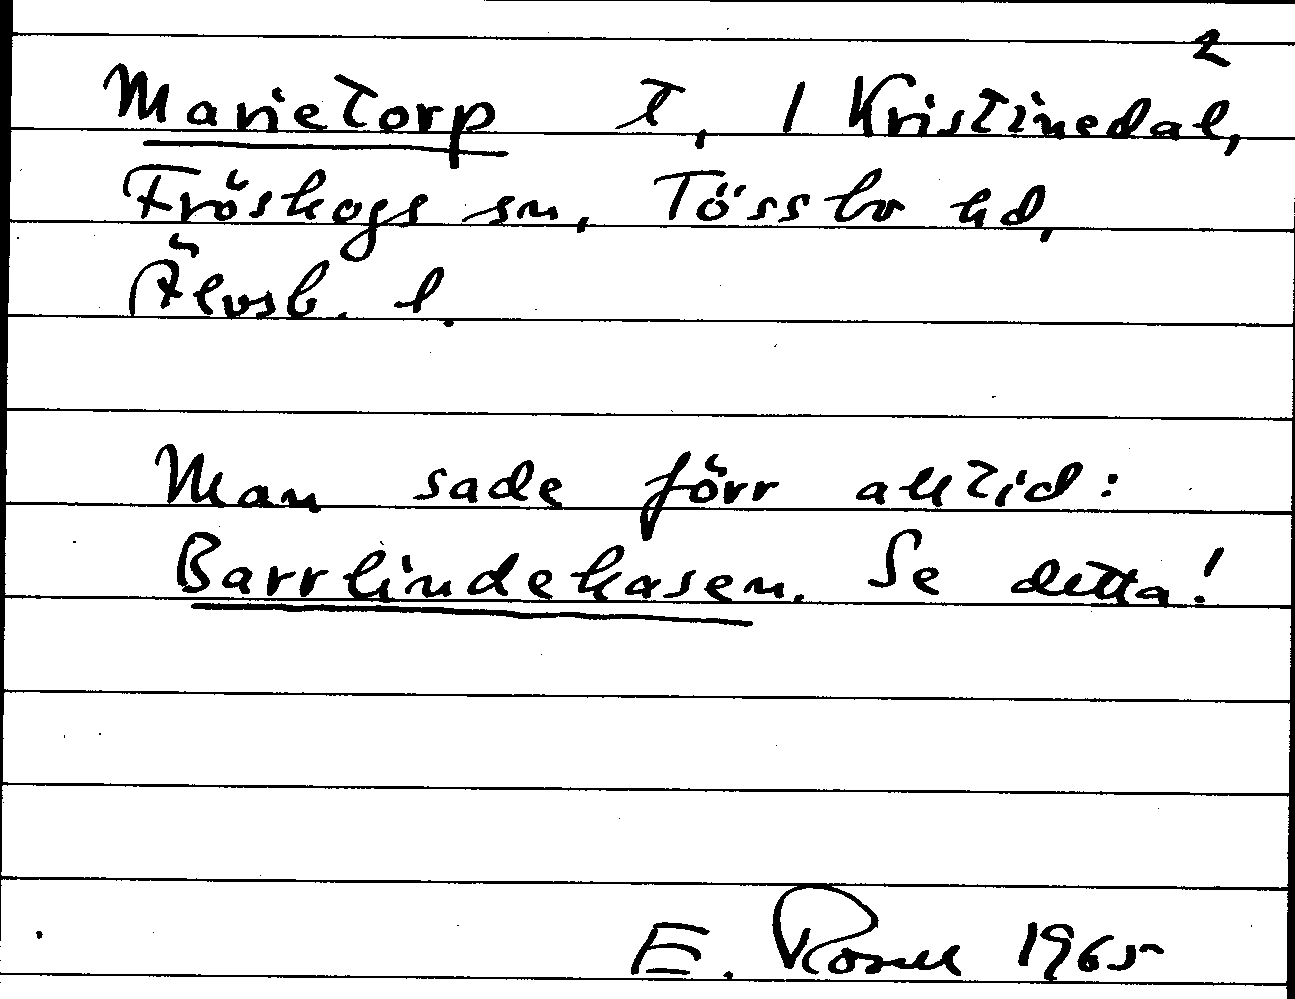 2
Marietorp t, 1 Kristinedal,
Fröskogs sn, Tössbo hd,
Älvsb. l.
Man sade förr alltid:
Barrlindekasen. Se detta!
E. Rosell 1965